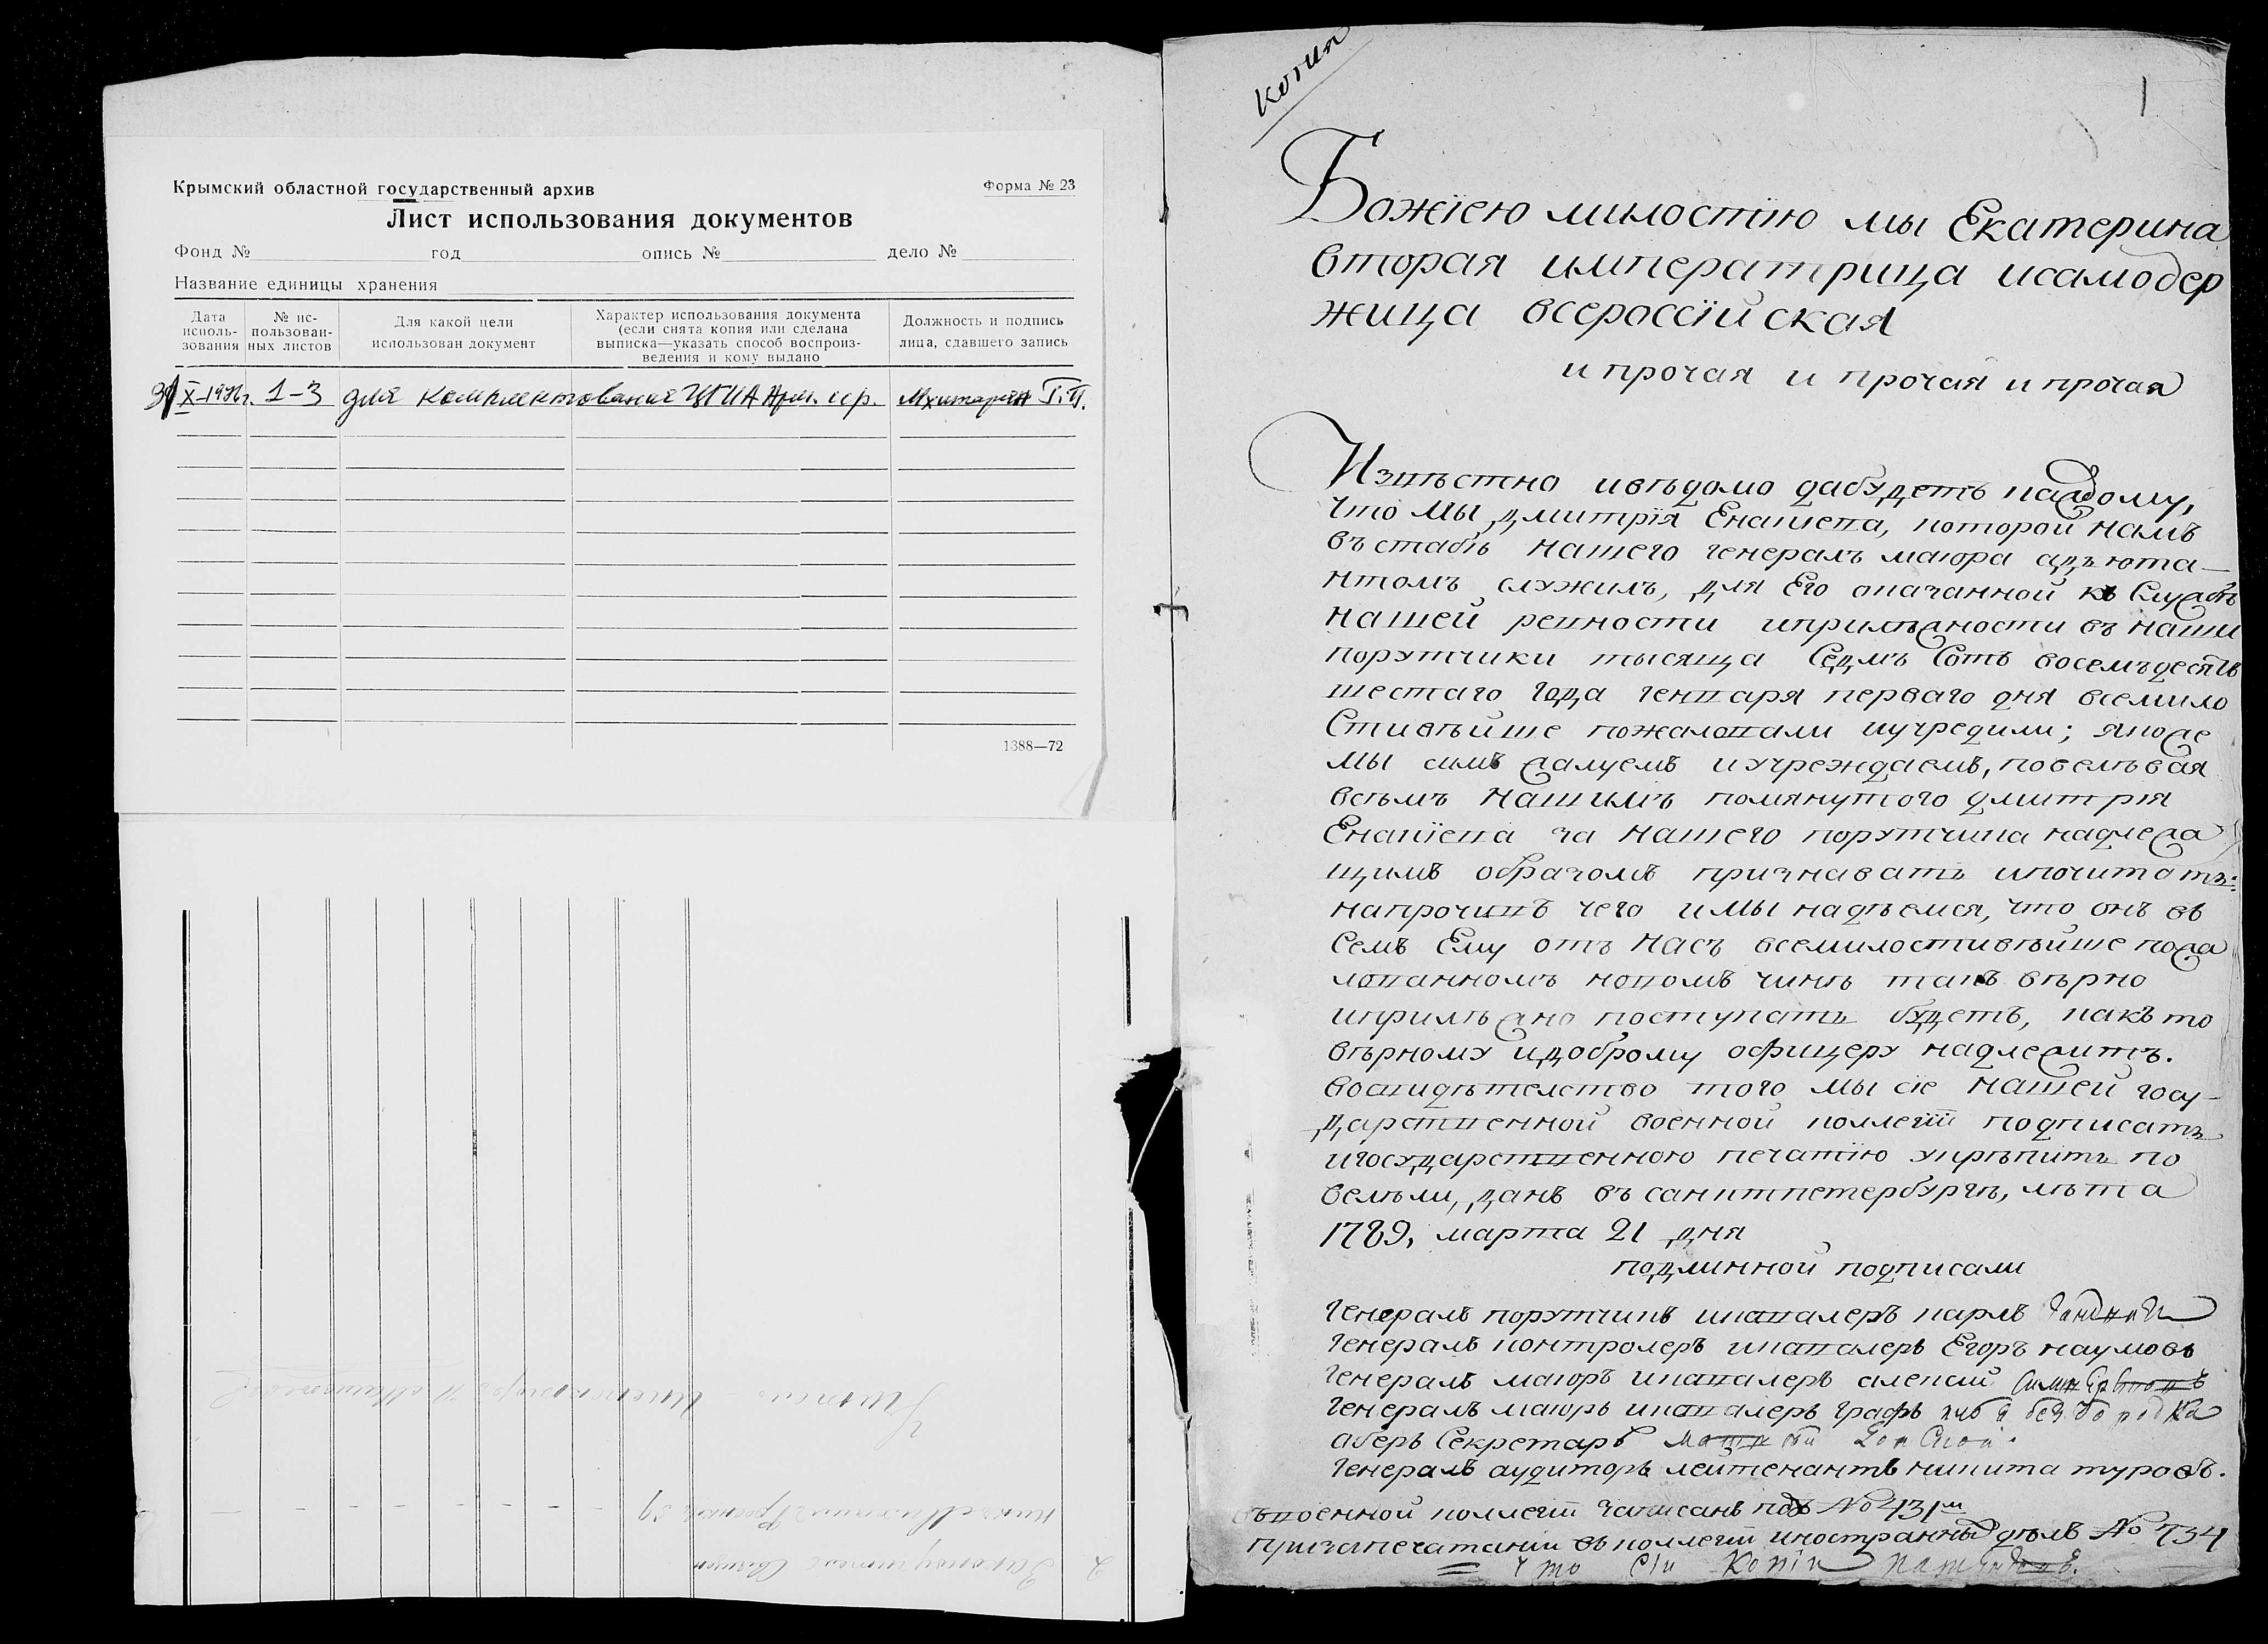 Крымский областной государственный архив
Форма № 23
Лист использования документов
Фонд № год опись № дело №
Название единицы хранения
Дата исполь-зования
№ ис-пользован-ных листов
Для какой цели использован документ
Характер использования документа (если снята копия или сделана выписка—указать способ воспроиз-ведения и кому выдано
Должность и подпись лица, сдавшего запись
X-1976г. 1-3 для комплектования ЦГИА Арм. сср. Мхитарян Г.П.
1388—72
копия
1
Божіею милостію мы Екатерина
вторая императрица исамодер
жица всероссійская
и прочая и прочая и прочая
Извѣстно ивѣдомо дабудетъ каждому,
что мы дмитрія Енакіева, которой намъ
въ стабѣ нашего генералъ маіора адъюта—
нтомъ служилъ, для Его оказанной къ Службѣ
нашей ревности иприлѣжности въ наши
порутчики тысяща Седмъ Сотъ восемъдесятъ
шестаго года генваря перваго дня всемило
Стивѣйше пожаловали иучредили; якоже
мы симъ жалуемъ иучреждаемъ, повелѣвая
всѣмъ нашимъ помянутого дмитрія
Енакіева за нашего порутчика надлежа
щимъ образомъ признавать ипочитать:
напротивъ чего имы надѣемся, что онъ въ
Семъ Ему отъ насъ всемилостивѣйше пожа
лованномъ новомъ чинѣ такъ вѣрно
иприлѣжно поступать будетъ, какъ то
вѣрному идоброму офицеру надлежитъ.
восвидѣтелство того мы сіе нашей госу-
дарственной военной коллегіи подписать
игосударственною печатію укрѣпить по
велѣли, данъ въ санктпетербургѣ, лѣта
1789, марта 21 дня
подлинной подписали
Генералъ порутчикъ икавалеръ карлъ
Генералъ контролеръ икавалеръ Егоръ наумовъ
Генералъ маіоръ икавалеръ алексій
Генералъ маіоръ икавалеръ графъ илія безбородка
аберъ Секретарь
Генералъ аудиторъ лейтенантъ никита туровъ.
въвоенной коллегіи записанъ подъ № 431м
призапечатаніи въ коллегіи иностранныхъ дѣлъ № 734
что Сіи Копіи